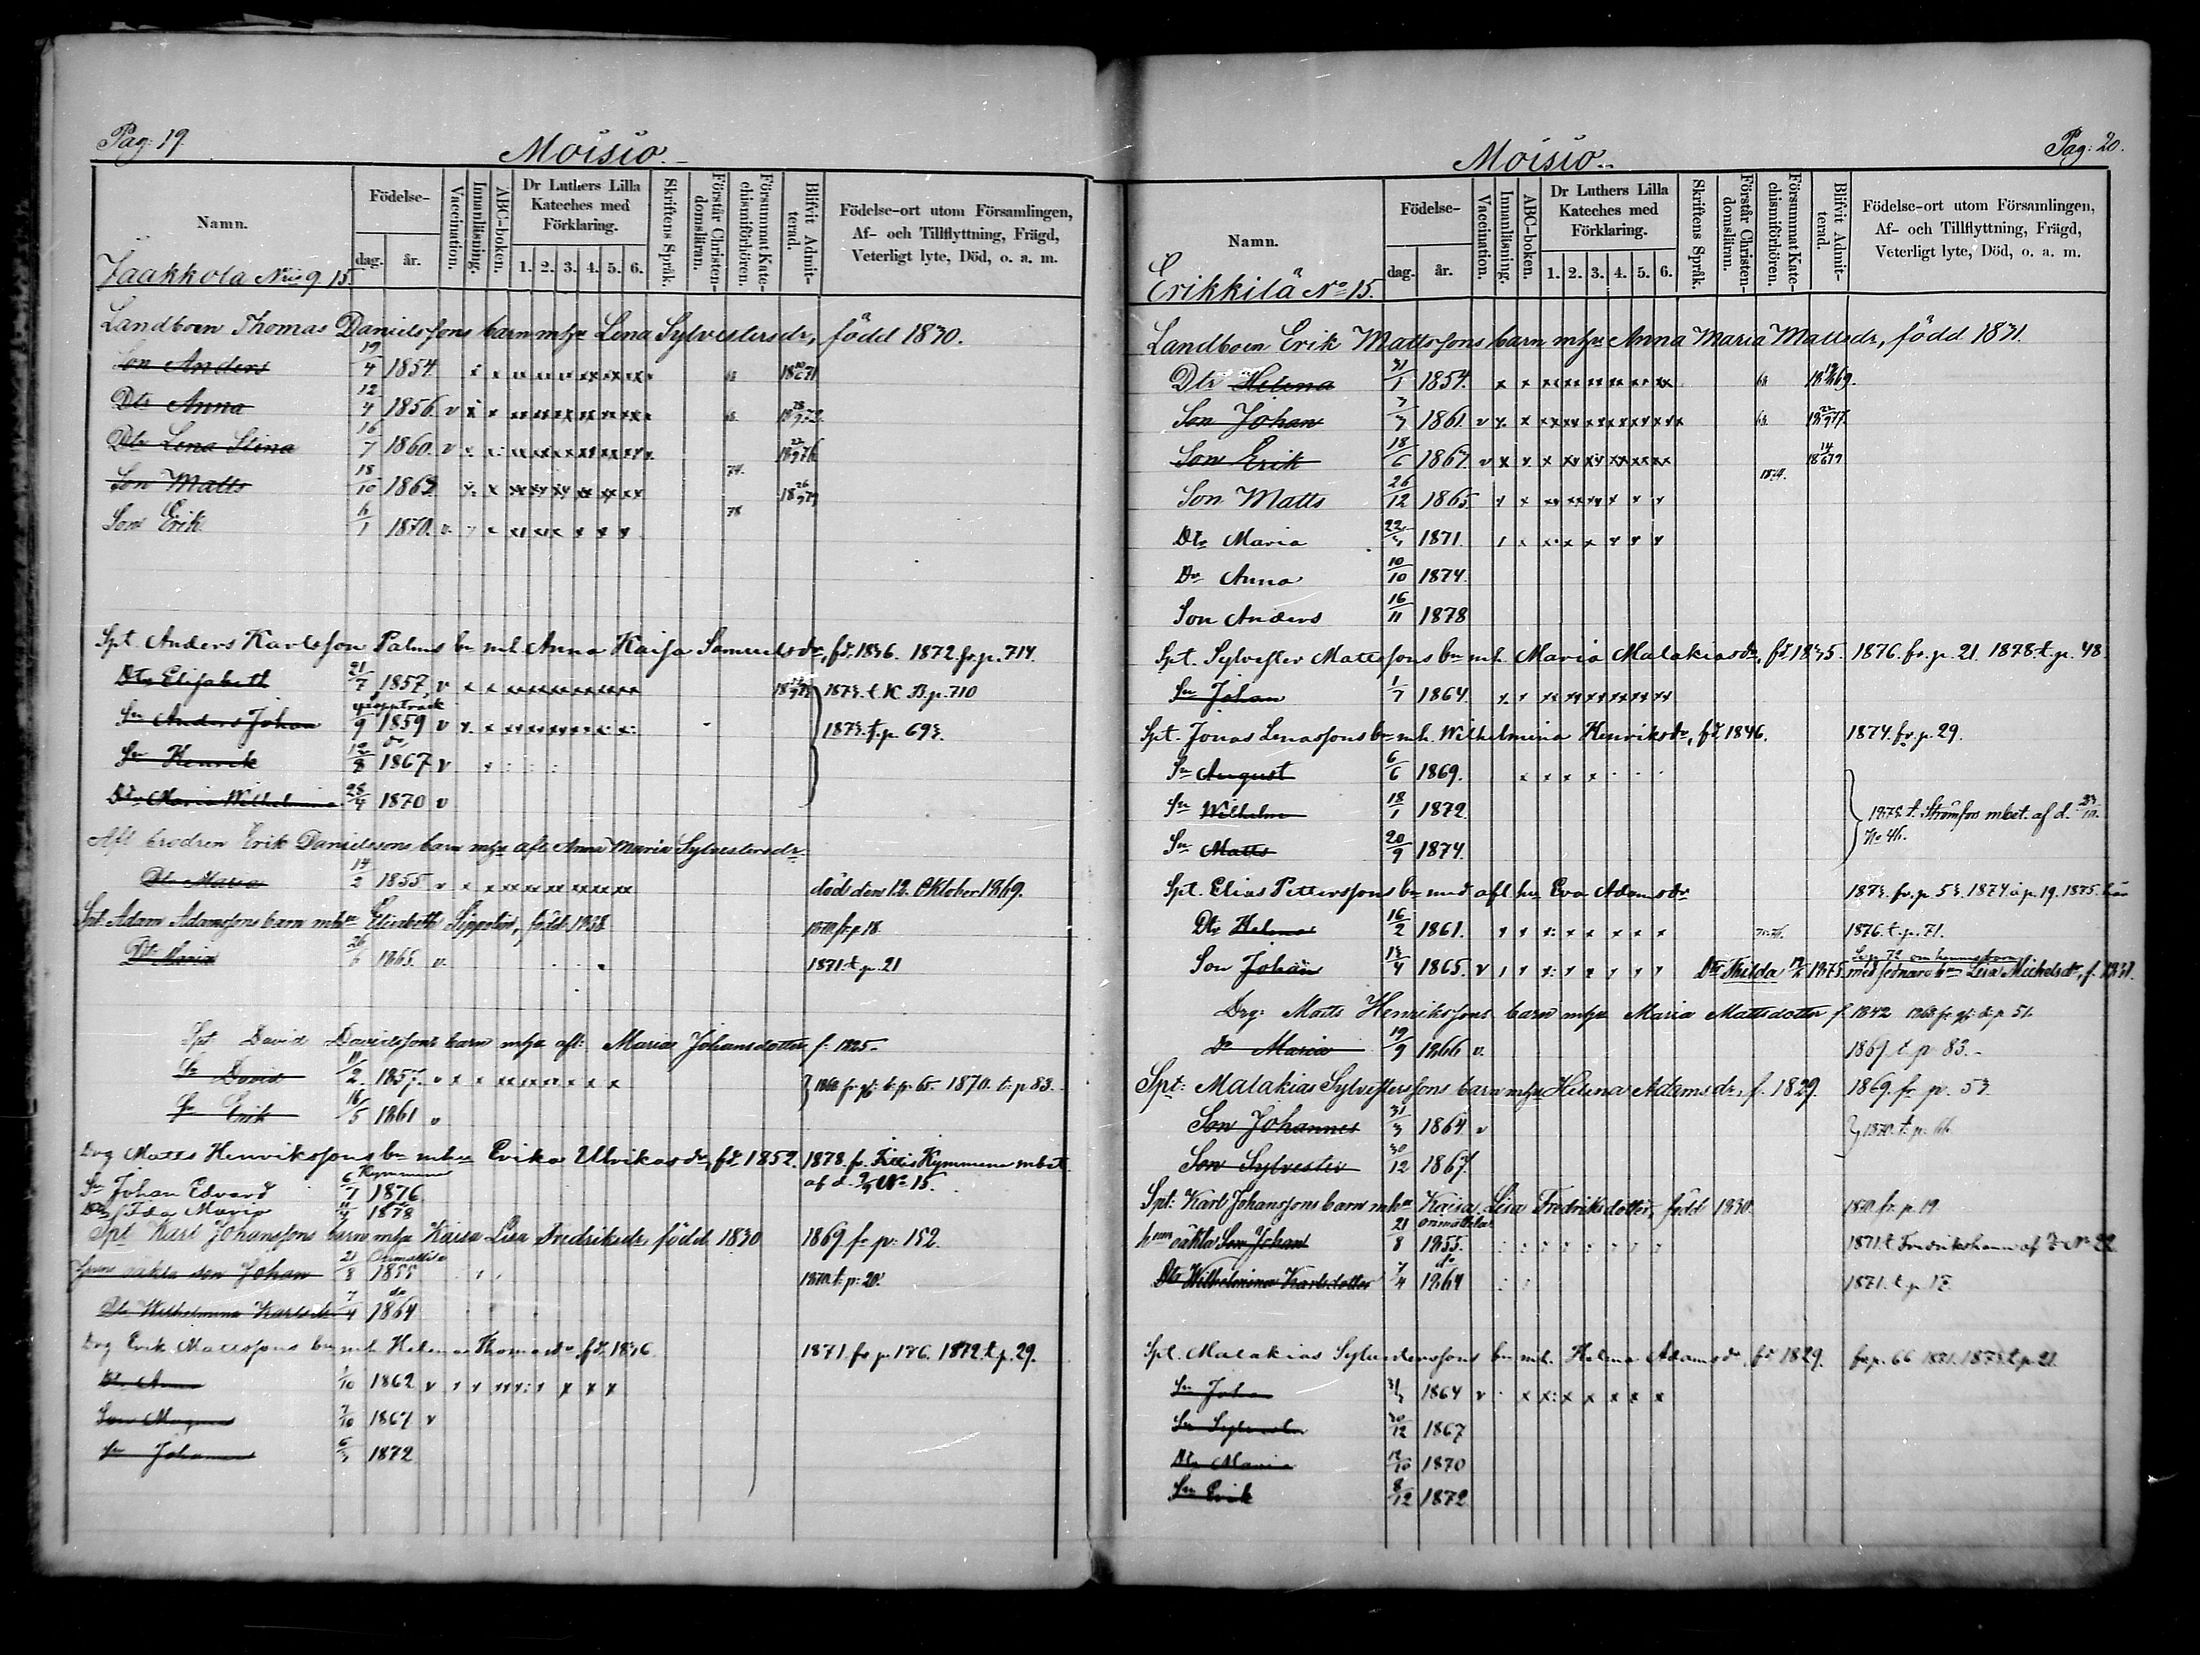 Pag: 19.
Moisio.
Namn.
Födelse-
dag.
år.
Vaccination.
Innanläsning.
ABC-boken.
Dr Luthers Lilla Kateches med Förklaring.
1. 2. 3. 4. 5. 6.
Skriftens Språk.
Förstår Christendomsläran.
Försummat Katechismiförhören.
Blifvit Admitterad.
Födelse-ort utom Församlingen,
Af- och Tillflyttning, Frägd,
Veterligt lyte, Död, o. a. m.
Jaakkola 9. 15.
Landboen Thomas Danielssons barn mhu Lena Sylvestersdr, född 1830.
Son Anders 19/4 1854
Dtr Anna 12/4 1856. v
Dtr Lena Stina 16/7 1860. v
Son Matts 18/10 186
Son Erik 6/1 1870. v.
Spt. Anders Karlsson Palms bn m.h. Anna Kaisa Samuelsdr, fd. 1836. 1872 fr. p. 714.
Dtr Elisabeth 21/7 1857, v 1873. t. K. B. p. 710
Sn Anders Johan /9 1859 v 1873. t. p. 693.
Sn Henrik 12/8 1867 v
Dtr Maria Wilhelmina 28/4 1870 v
Afl. brodren Erik Danielssons barn mhu afl. Anna Maria Sylvestersdr
Dtr Maria 14/2 1855 v död den 12. Oktober 1869.
Spt. Adam Adamssons barn mhu Elisabeth Sippolin, född 1838. 1870. fr. p. 18.
Dtr Maria 26/6 1865. v. 1871. t. p. 21
Spt. David Davidssons barn mhu afl: Maria Johansdotter f. 1825.
Sn David 11/2 1857. v 1870. t. p. 83.
Sn Erik 16/5 1861 v
Drg Matts Henrikssons bn mhu Erika Ulrikasdr, fd. 1852. 1878. fr. Kymmene mbet.
Kymmene
Sn Johan Edvard 6/7 1876 af d. No 15.
Dtr Ida Maria 11/4 1878
Spt Karl Johanssons barn mhu Kaisa Lisa Fredriksdr, född 1830 1869 fr. p. 152.
oäkta son Johan 21/8 1855 1870. t. p: 20.
Dtr Wilhelmina Karlsdr 7/4 do 1864
Drg Erik Mattssons bn m.h. Helena Thomasdr fd. 1836. 1871. fr. p. 176. 1872. t. p. 29.
Dtr Anna 1/10 1862 v
Son Magnus 7/10 1867 v
Sn Johannes 6/3 1872
Pag: 20.
Moisio.
Namn.
Födelse-
dag.
år.
Vaccination.
Innanläsning.
ABC-boken.
Dr Luthers Lilla Kateches med Förklaring.
1. 2. 3. 4. 5. 6.
Skriftens Språk.
Förstår Christendomsläran.
Försummat Katechismiförhören.
Blifvit Admitterad.
Födelse-ort utom Församlingen,
Af- och Tillflyttning, Frägd,
Veterligt lyte, Död, o. a. m.
Erikkilä No 15.
Landboen Erik Mattssons barn mhu Anna Maria Mattsdr, född 1831.
Dtr Helena 31/1 1854.
Son Johan 3/3 1861 v
Son Erik 18/6 186 v
Son Matts 26/12 1865
Dtr Maria 22/3 1871.
Dr Anna 10/10 1874.
Son Anders 16/11 1878
Spt. Sylvester Mattssons bn m.h. Maria Malakiasdr, fd. 1835. 1876. fr. p. 21. 1878. t. p. 48.
Sn Johan 1/7 1864.
Spt. Jonas Lenassons bn m.h. Wilhelmina Henriksdr, fd. 1846. 1874. fr. p. 29.
Sn August 6/6 1869.
Sn Wilhelm 18/1 1872 t. Strömfors mbet. af d.
Sn Matts 20/9 1874. No 46.
Spt. Elias Petterssons bn med afl. hu Eva Adamsdr 1873. fr. p. 53. 1874 à p. 19. 1875.
Dtr Helena 16/2 1861. 1876. t. p. 71.
Son Johan 13/4 1865. v Dtr Thilda 1875. med sednare hu Lisa Michelsdr, f.
Drg: Matts Henrikssons barn mhu Maria Mattsdotter f. 1842 p. 51.
Dr Maria 19/9 1866 v. 1869. t. p. 83.
Spt: Malakias Sylvesterssons barn mhu Helena Adamsdr, f. 1829. 1869. fr. p. 53.
Son Johannes 31/3 1864 v 1870. t. p. 66.
Son Sylvester 30/12 1867
Spt: Karl Johanssons barn mhu Kaisa Lisa Fredriksdotter, född 1830. 1870. fr. p. 19.
oäkta Son Johan 21/8 1855. 1871. t. Fredrikshamn af No 22.
Dtr Wilhelmina Karlsdotter 7/4 do 1864 1871. t. p. 17.
Spt. Malakias bn m.h. Helena Adamsdr, fd 1829. fr. p. 66 1871. 1873. t. p. 21.
Sn Johan 31/3 1864 v
Sn Sylvester 30/12 1867
Dtr Maria 12/10 1870
Sn Erik 8/12 1872